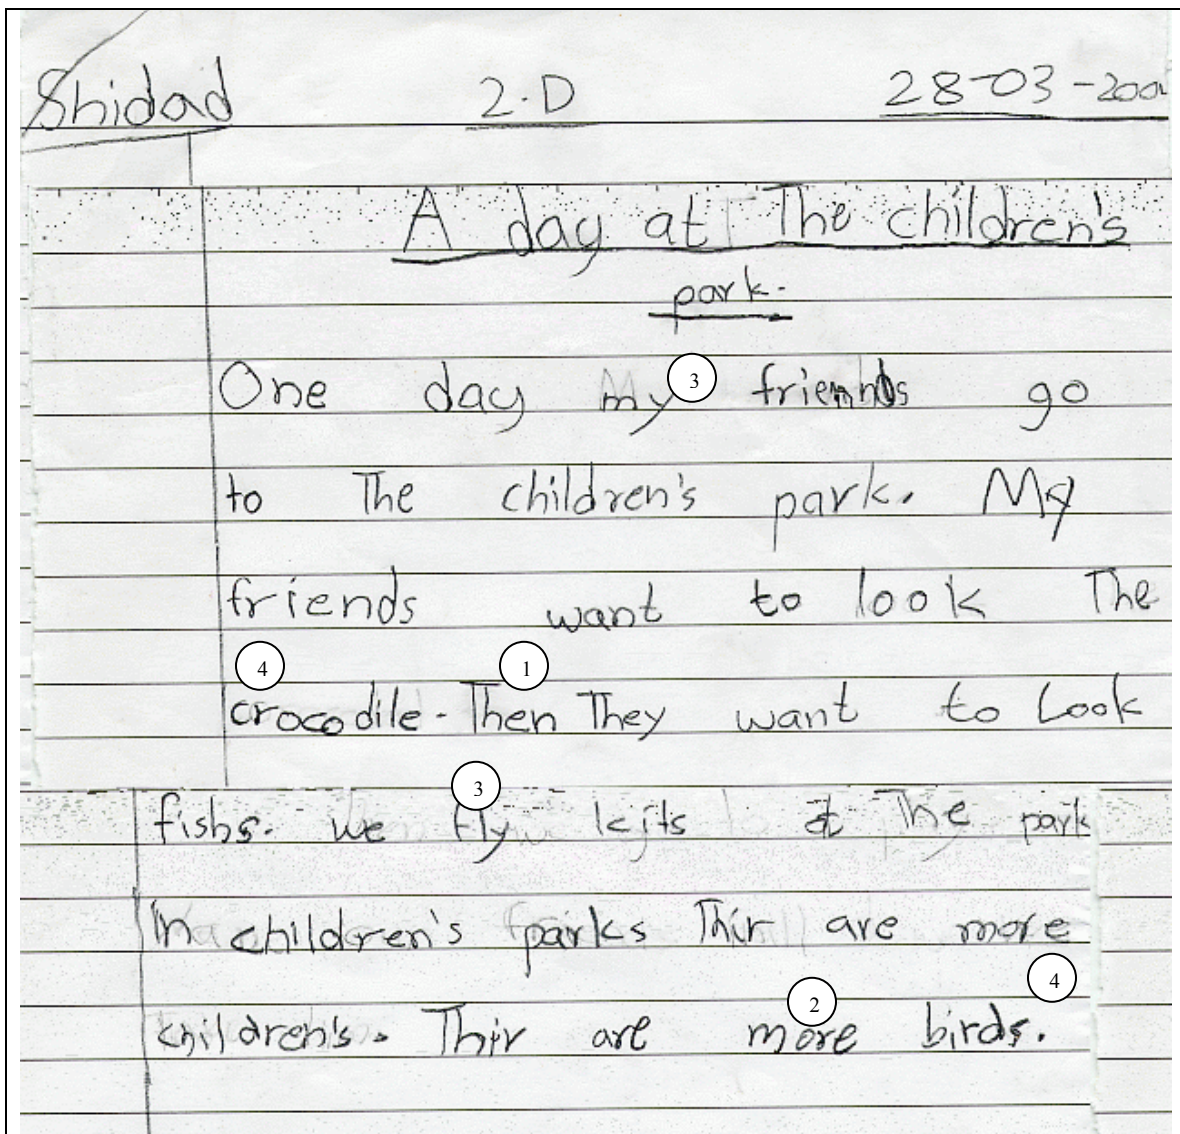 Shidad 2.D 28-03-200
A day at The children's
park.
One day My 3 friends go
to The children's park. My
friends want to look The
4 1
crocodile. Then They want to Look
3
fishs. we fly kits at The park
In children's parks Thir are more
2 4
children's. Thir are more birds.